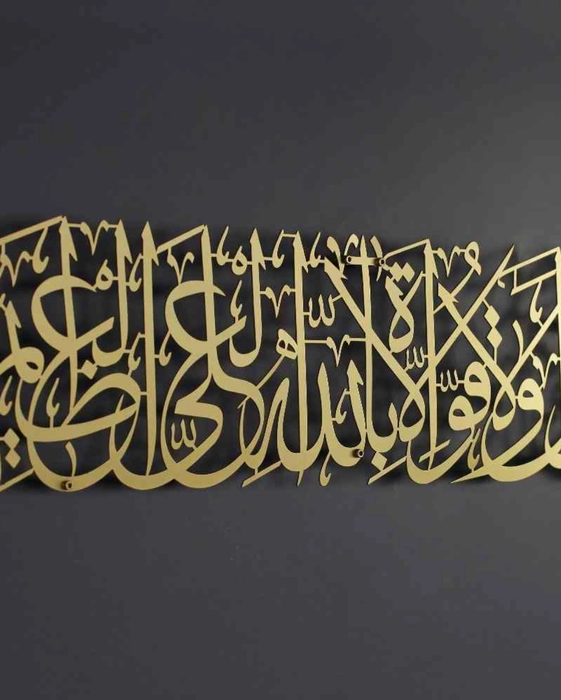 ولا قوة إلا بالله العلي العظيم